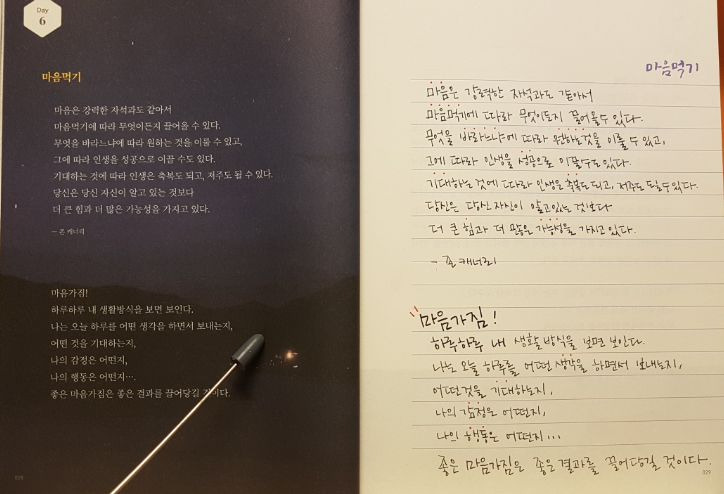 Day
6
마음먹기
마음은 강력한 자석과도 같아서
마음먹기에 따라 무엇이든지 끌어올 수 있다.
무엇을 바라느냐에 따라 원하는 것을 이룰 수 있고,
그에 따라 인생을 성공으로 이끌 수도 있다.
기대하는 것에 따라 인생은 축복도 되고, 저주도 될 수 있다.
당신은 당신 자신이 알고 있는 것보다
더 큰 힘과 더 많은 가능성을 가지고 있다.
– 존 캐너리
마음가짐!
하루하루 내 생활방식을 보면 보인다.
나는 오늘 하루를 어떤 생각을 하면서 보내는지,
어떤 것을 기대하는지,
나의 감정은 어떤지,
나의 행동은 어떤지….
좋은 마음가짐은 좋은 결과를 끌어당길 것이다.
마음먹기
마음은 강력한 자석과도 같아서
마음먹기에 따라 무엇이든지 끌어올 수 있다.
무엇을 바라느냐에 따라 원하는것을 이룰 수 있고,
그에 따라 인생을 성공으로 이끌수도 있다.
기대하는 것에 따라 인생을 축복도 되고, 저주도 될 수 있다.
당신은 당신 자신이 알고 있는 것보다
더 큰 힘과 더 많은 가능성을 가지고 있다.
- 존 캐너리
마음가짐!
하루하루 내 생활방식을 보면 보인다.
나는 오늘 하루를 어떤 생각을 하면서 보내는지,
어떤것을 기대하는지,
나의 감정은 어떤지,
나의 행동은 어떤지...
좋은 마음가짐은 좋은 결과를 끌어당길 것이다.
029